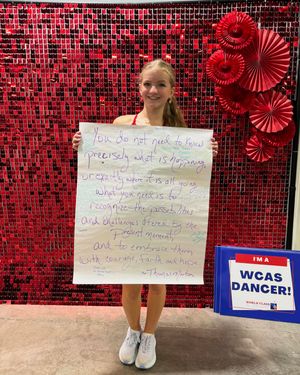 You do not need to know
precisely what is happening
or exactly where it is all going
what you need is to
recognize the possibilities
and challenges offered by the
present moment
and to embrace them
with courage, faith and hope
I'M A
WCAS
DANCER!
WORLD CLASS